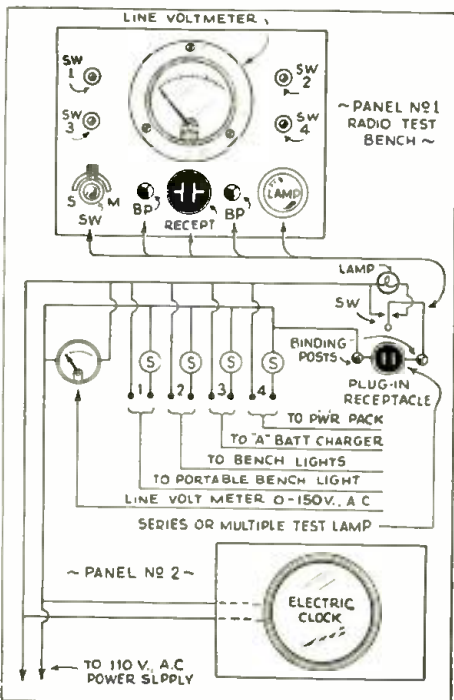 LINE VOLTMETER
SW
1
SW
2
SW
3
SW
4
~ PANEL Nº1
RADIO TEST
BENCH ~
S M
SW
BP
RECEPT
BP
LAMP
LAMP
SW
BINDING
POSTS
PLUG-IN
RECEPTACLE
S
S
S
S
1 2 3 4
TO PWR PACK
TO "A" BATT CHARGER
TO BENCH LIGHTS
TO PORTABLE BENCH LIGHT
LINE VOLT METER 0-150V., A.C
SERIES OR MULTIPLE TEST LAMP
~ PANEL Nº 2 ~
ELECTRIC
CLOCK
TO 110 V., A.C
POWER SUPPLY